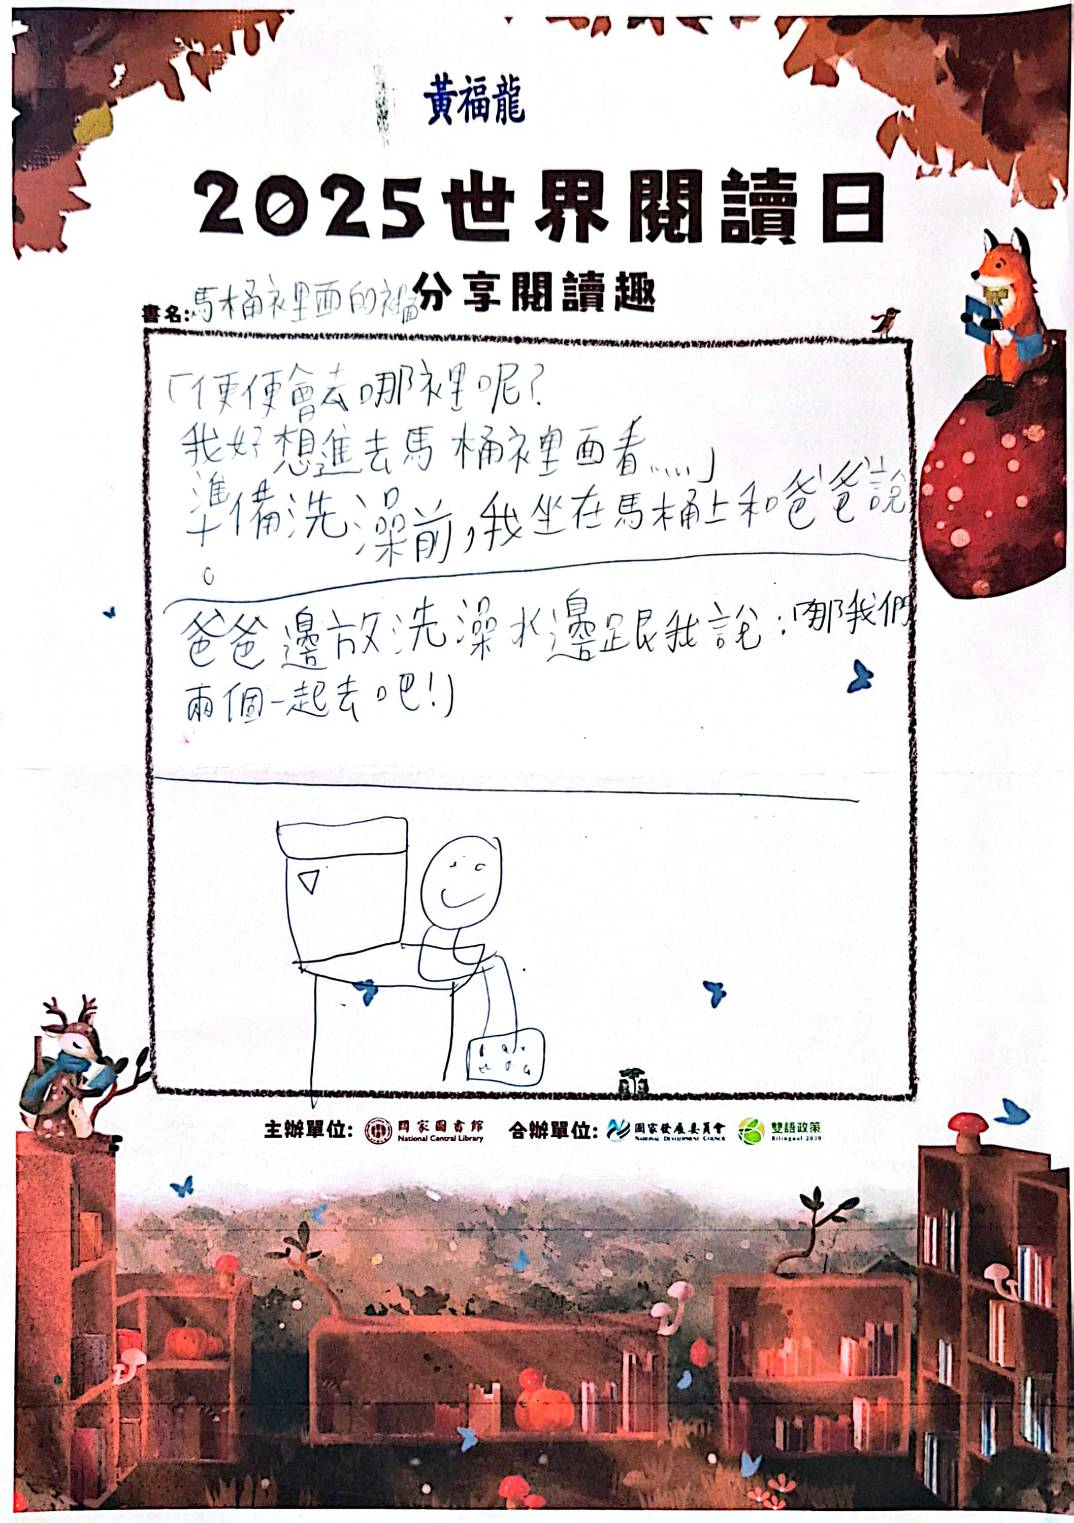 黃福龍
2025世界閱讀日
分享閱讀趣
書名:馬桶裡面的
「便便會去哪裡呢?
我好想進去馬桶裡面看……」
準備洗澡前,我坐在馬桶上和爸爸說
。
爸爸邊放洗澡水邊跟我說:「哪我們
兩個一起去吧!」
主辦單位: 國家圖書館 National Central Library 合辦單位: 國家發展委員會 National Development Council 雙語政策 Bilingual 2030